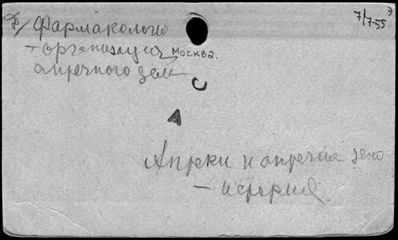 Ф/ Фармакология 7/7-55
– организация Москва.
аптечного дела
С
А
Аптеки и аптечн. дело
– история